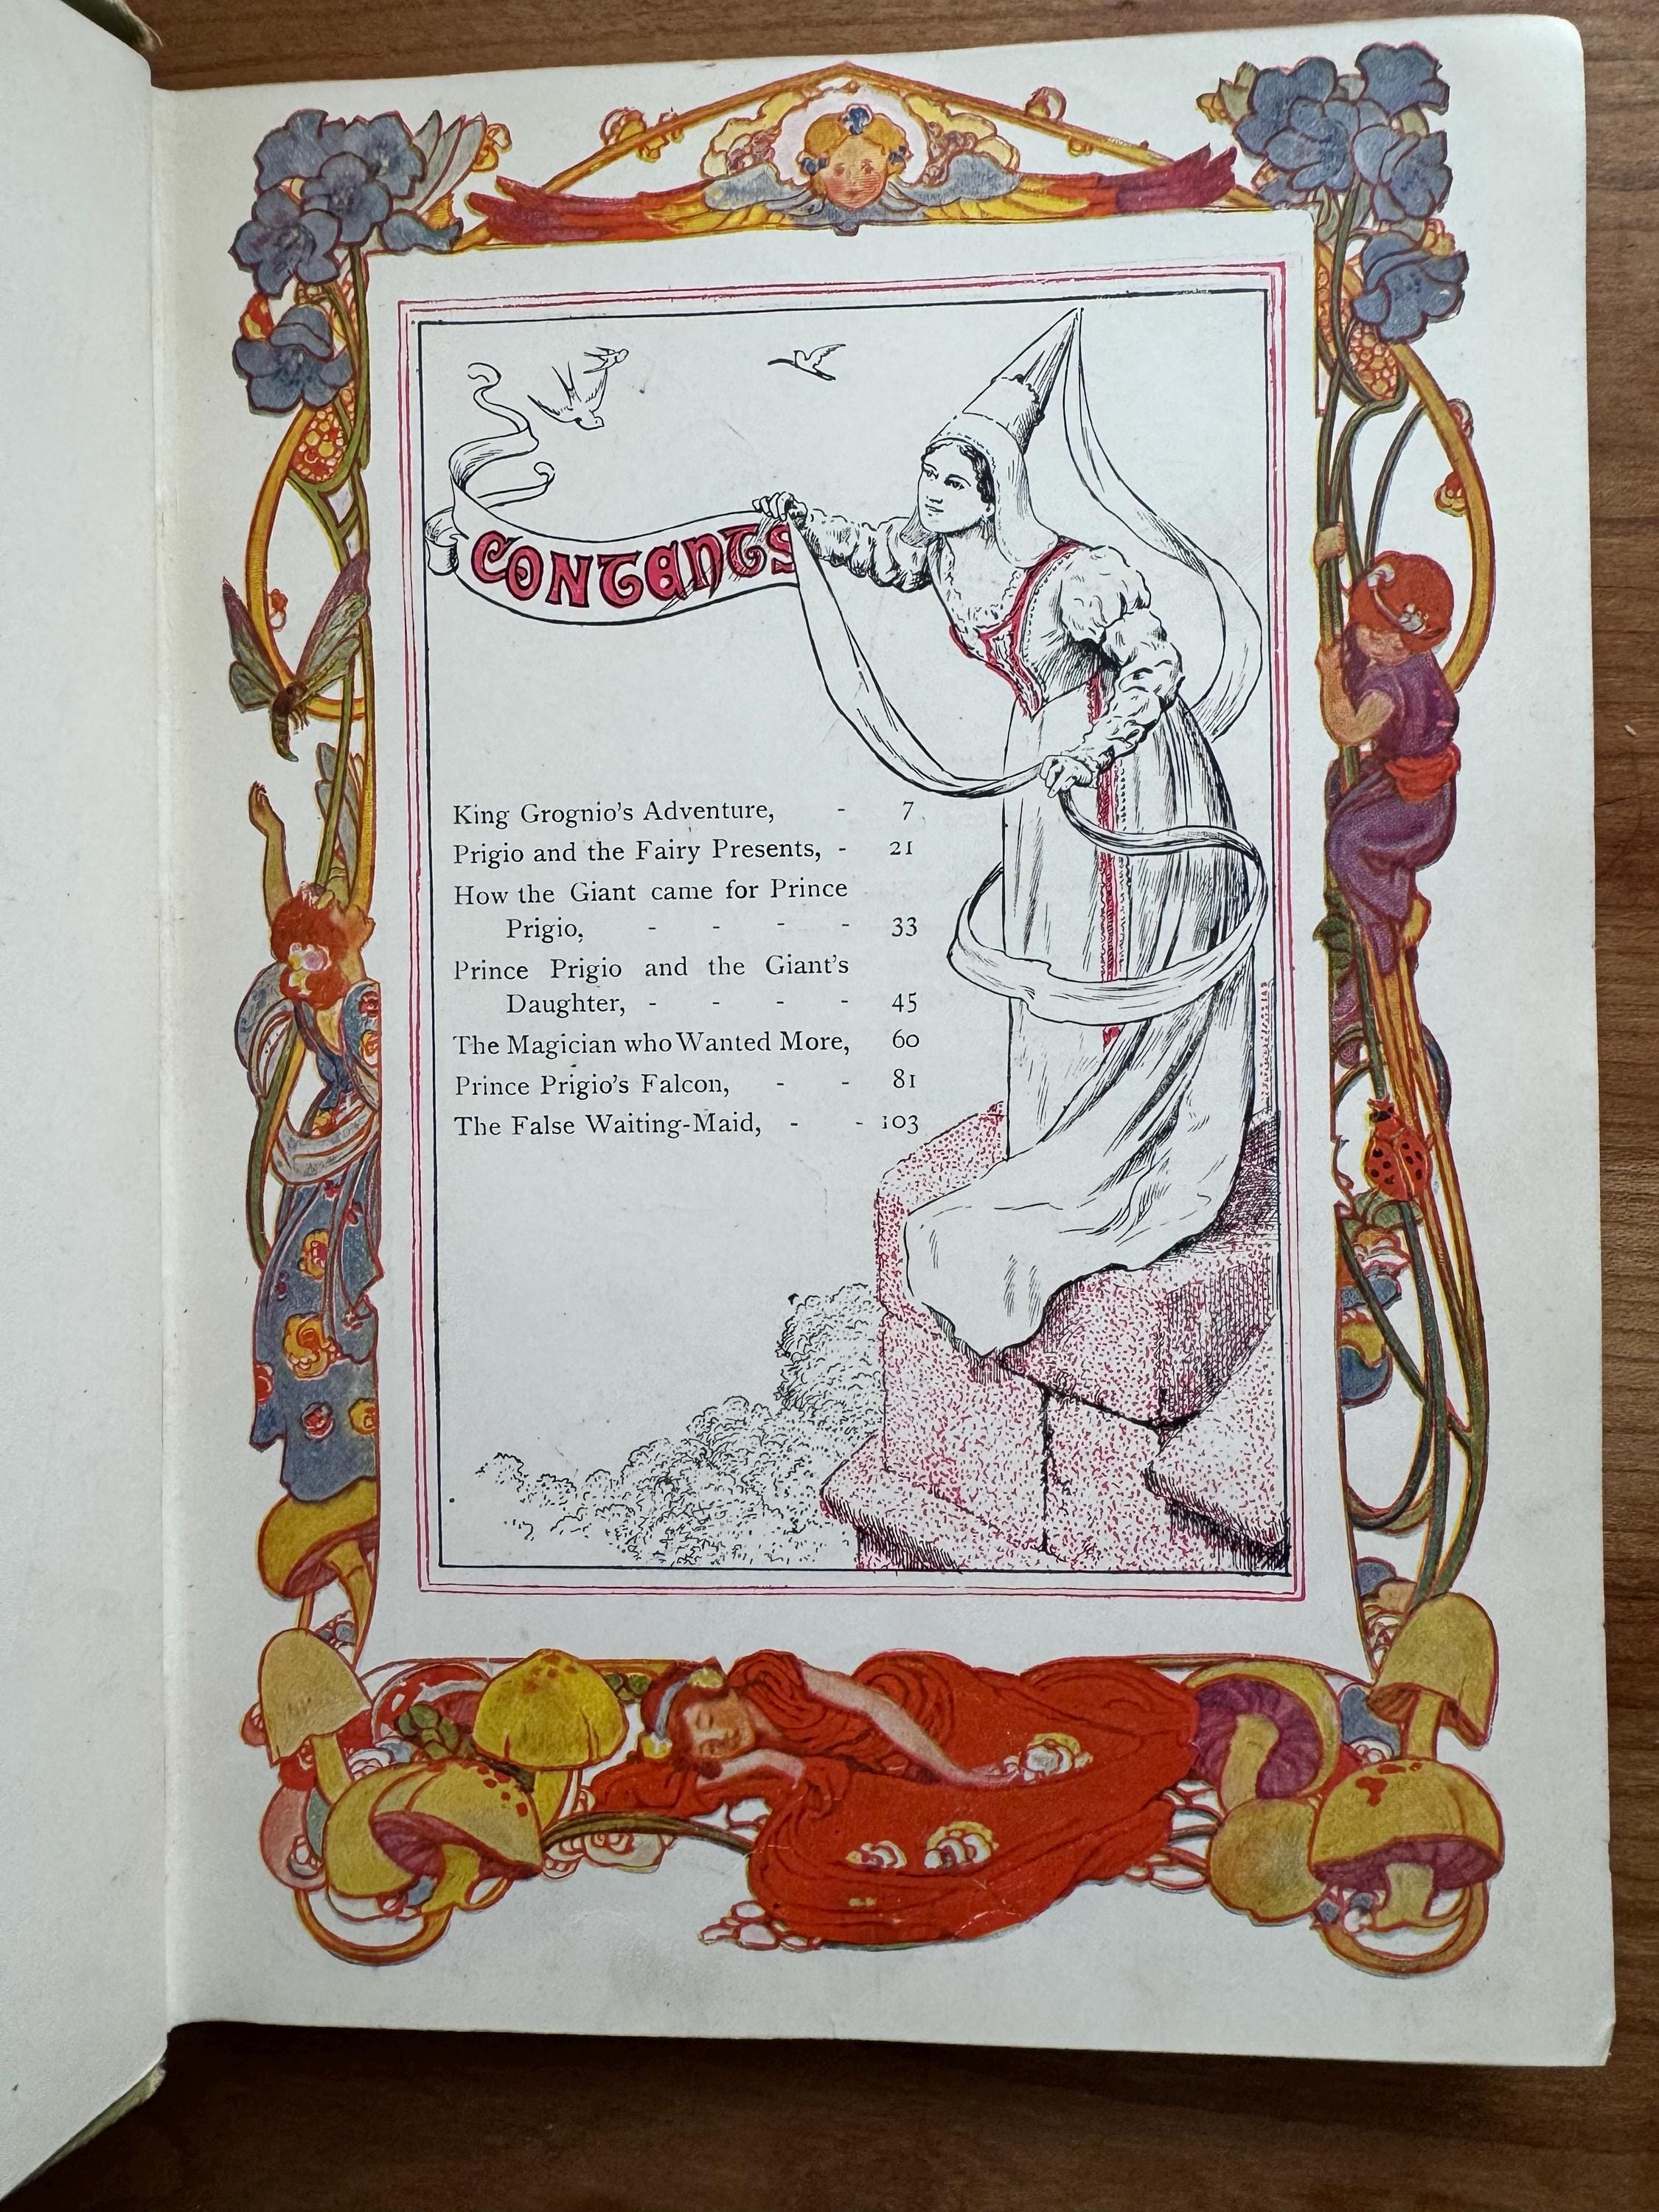 CONTENTS
King Grognio's Adventure, - 7
Prigio and the Fairy Presents, - 21
How the Giant came for Prince
Prigio, - - - - 33
Prince Prigio and the Giant's
Daughter, - - - - 45
The Magician who Wanted More, 60
Prince Prigio's Falcon, - - 81
The False Waiting-Maid, - - 103